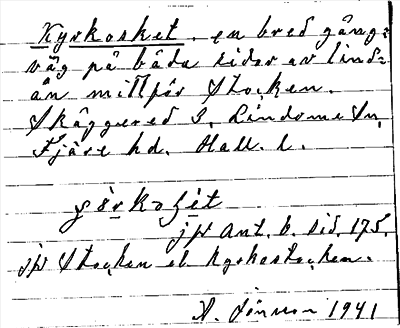 Kyrkosket. en bred gång=
väg på båda sidor av lind=
ån mittför Stocken.
Skäggered 3. Lindome Sn.
Fjäre hd. Hall. l.
jfr Ant. b. sid. 175.
jfr Stocken el kyrkostocken.
A. Jönsson 1941